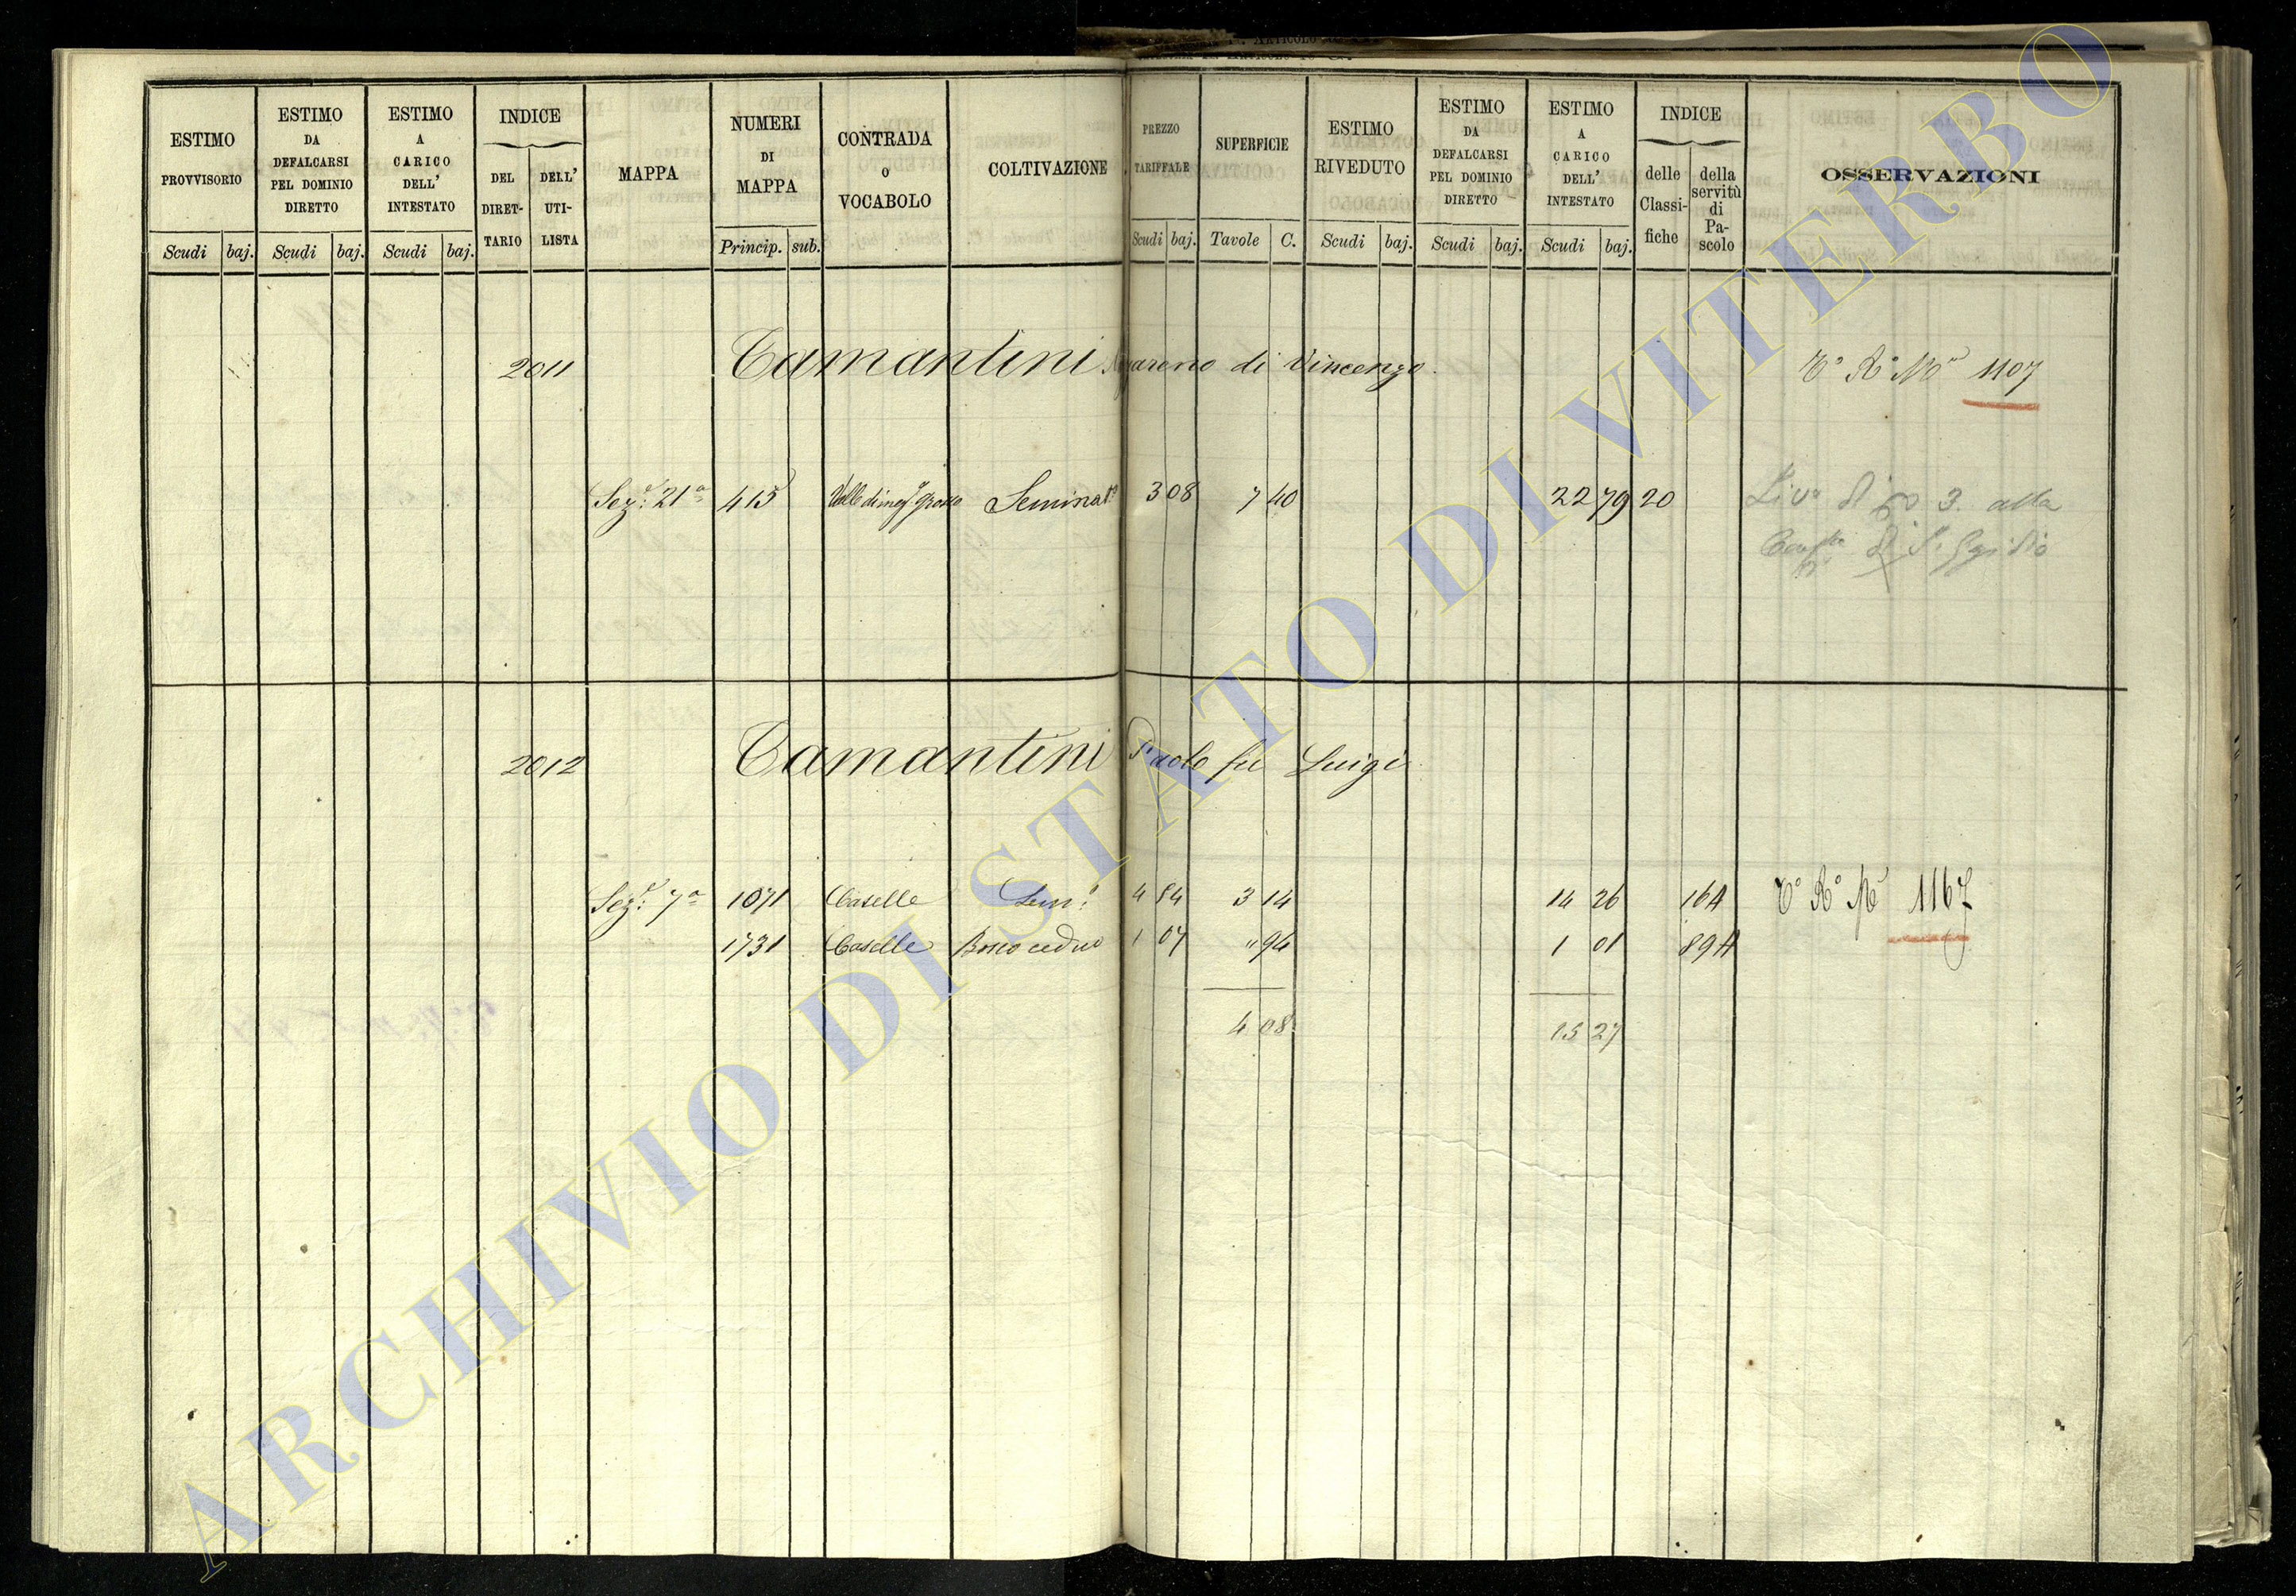 ESTIMO PROVVISORIO Scudi baj.
ESTIMO DA DEFALCARSI PEL DOMINIO DIRETTO Scudi baj.
ESTIMO A CARICO DELL' INTESTATO Scudi baj.
INDICE DEL DIRET-TARIO DELL' UTI-LISTA
MAPPA
NUMERI DI MAPPA Princip. sub.
CONTRADA O VOCABOLO
COLTIVAZIONE
PREZZO TARIFFALE Scudi baj.
SUPERFICIE Tavole C.
ESTIMO RIVEDUTO Scudi baj.
ESTIMO DA DEFALCARSI PEL DOMINIO DIRETTO Scudi baj.
ESTIMO A CARICO DELL' INTESTATO Scudi baj.
INDICE delle Classi-fiche della servitù di Pa-scolo
OSSERVAZIONI
2011 Tamantini di Vincenzo 1107
Sez.e 21a 415 Seminat.o 3 08 7 40 22 79 20 3. alla
di S. Egidio
2012 Tamantini Paolo fu Luigi
Sez.e 7a 1071 Caselle Sem.o 4 84 3 14 14 26 16A 1167
1731 Caselle Bosco ceduo 1 07 " 94 1 01 89A
4 08 15 27
ARCHIVIO DI STATO DI VITERBO